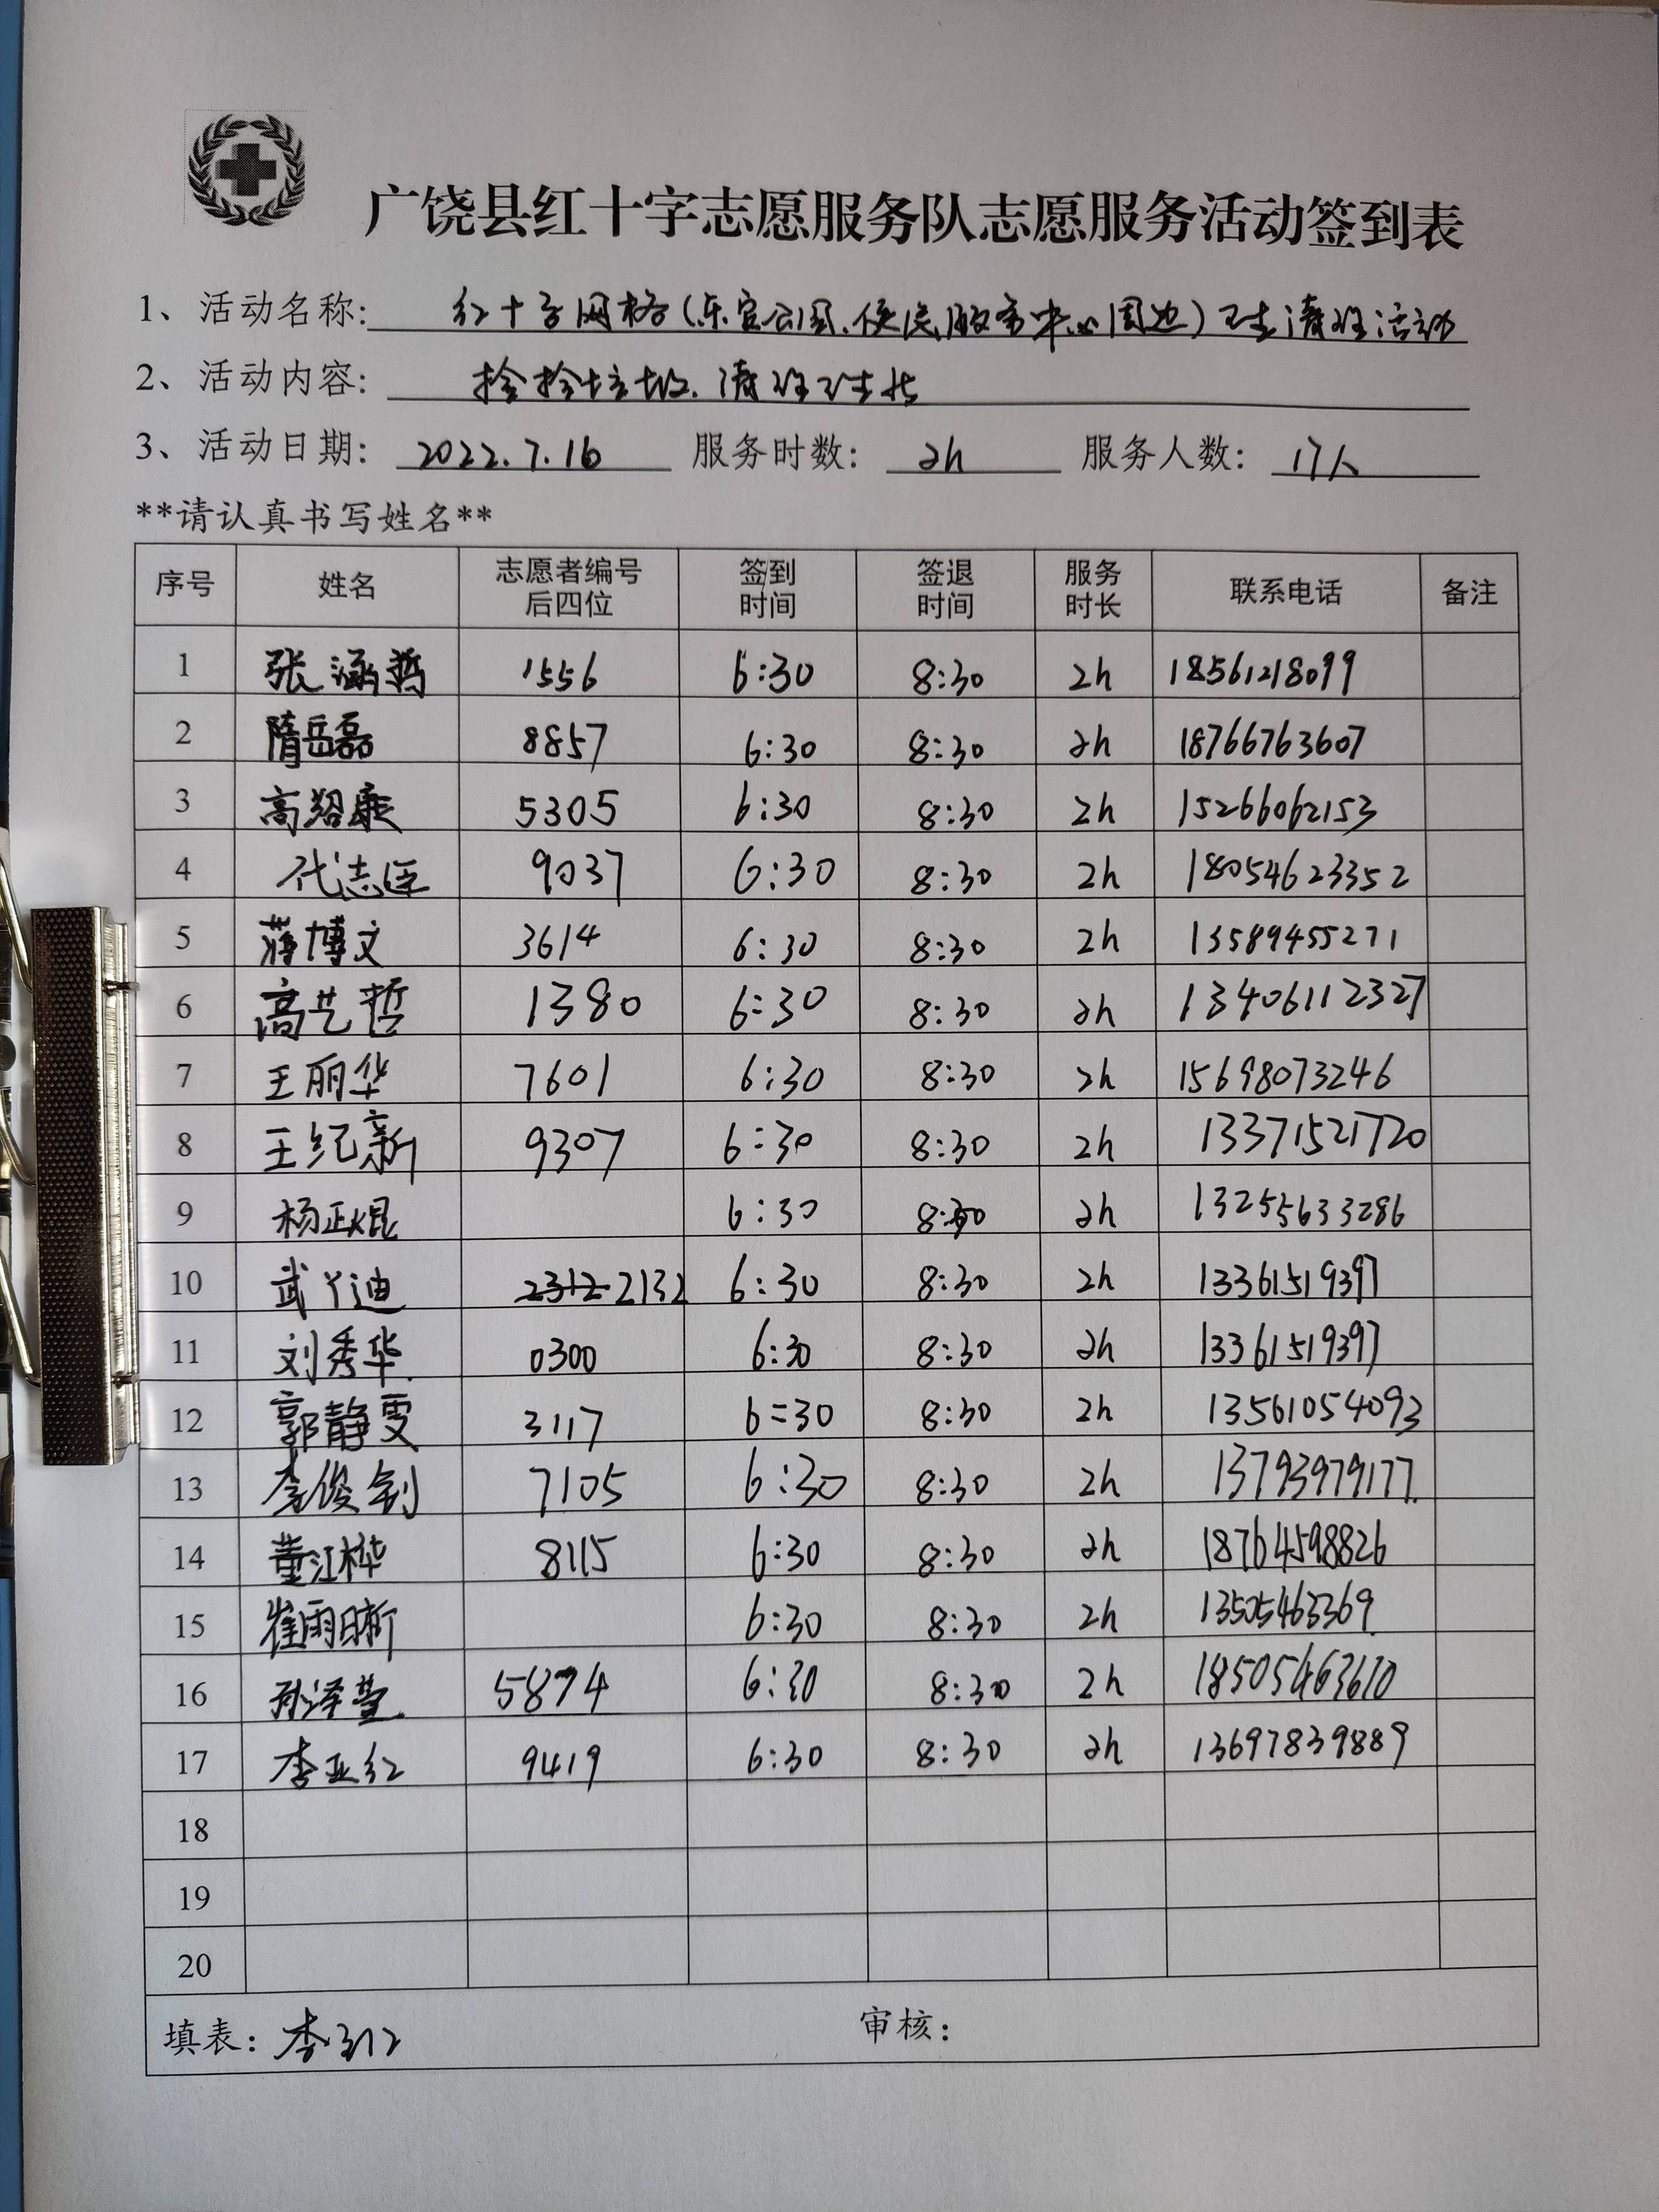 广饶县红十字志愿服务队志愿服务活动签到表
1、活动名称: 红十字网格(乐安公园、便民服务中心周边)卫生清理活动
2、活动内容: 捡拾垃圾、清理卫生
3、活动日期: 2022.7.16 服务时数: 2h 服务人数: 17人
**请认真书写姓名**
序号 姓名 志愿者编号后四位 签到时间 签退时间 服务时长 联系电话 备注
1 张涵哲 1556 6:30 8:30 2h 18561218099
2 隋岳磊 8857 6:30 8:30 2h 18766763607
3 高绍康 5305 6:30 8:30 2h 15266062153
4 代志 9037 6:30 8:30 2h 18054623352
5 蒋博文 3614 6:30 8:30 2h 13589455271
6 高艺哲 1380 6:30 8:30 2h 13406112327
7 王丽华 7601 6:30 8:30 2h 15698073246
8 王纪新 9307 6:30 8:30 2h 13371521720
9 杨正焜 6:30 8:30 2h 13255633286
10 武丫迪 2312 2132 6:30 8:30 2h 13361519397
11 刘秀华 0300 6:30 8:30 2h 13361519397
12 郭静雯 3117 6:30 8:30 2h 13561054093
13 李俊钊 7105 6:30 8:30 2h 13793979177
14 董江桦 8115 6:30 8:30 2h 18764598826
15 崔雨昕 6:30 8:30 2h 13505463369
16 孙泽萱 5874 6:30 8:30 2h 18505463610
17 李亚红 9419 6:30 8:30 2h 13697839889
18
19
20
填表: 李亚红 审核: